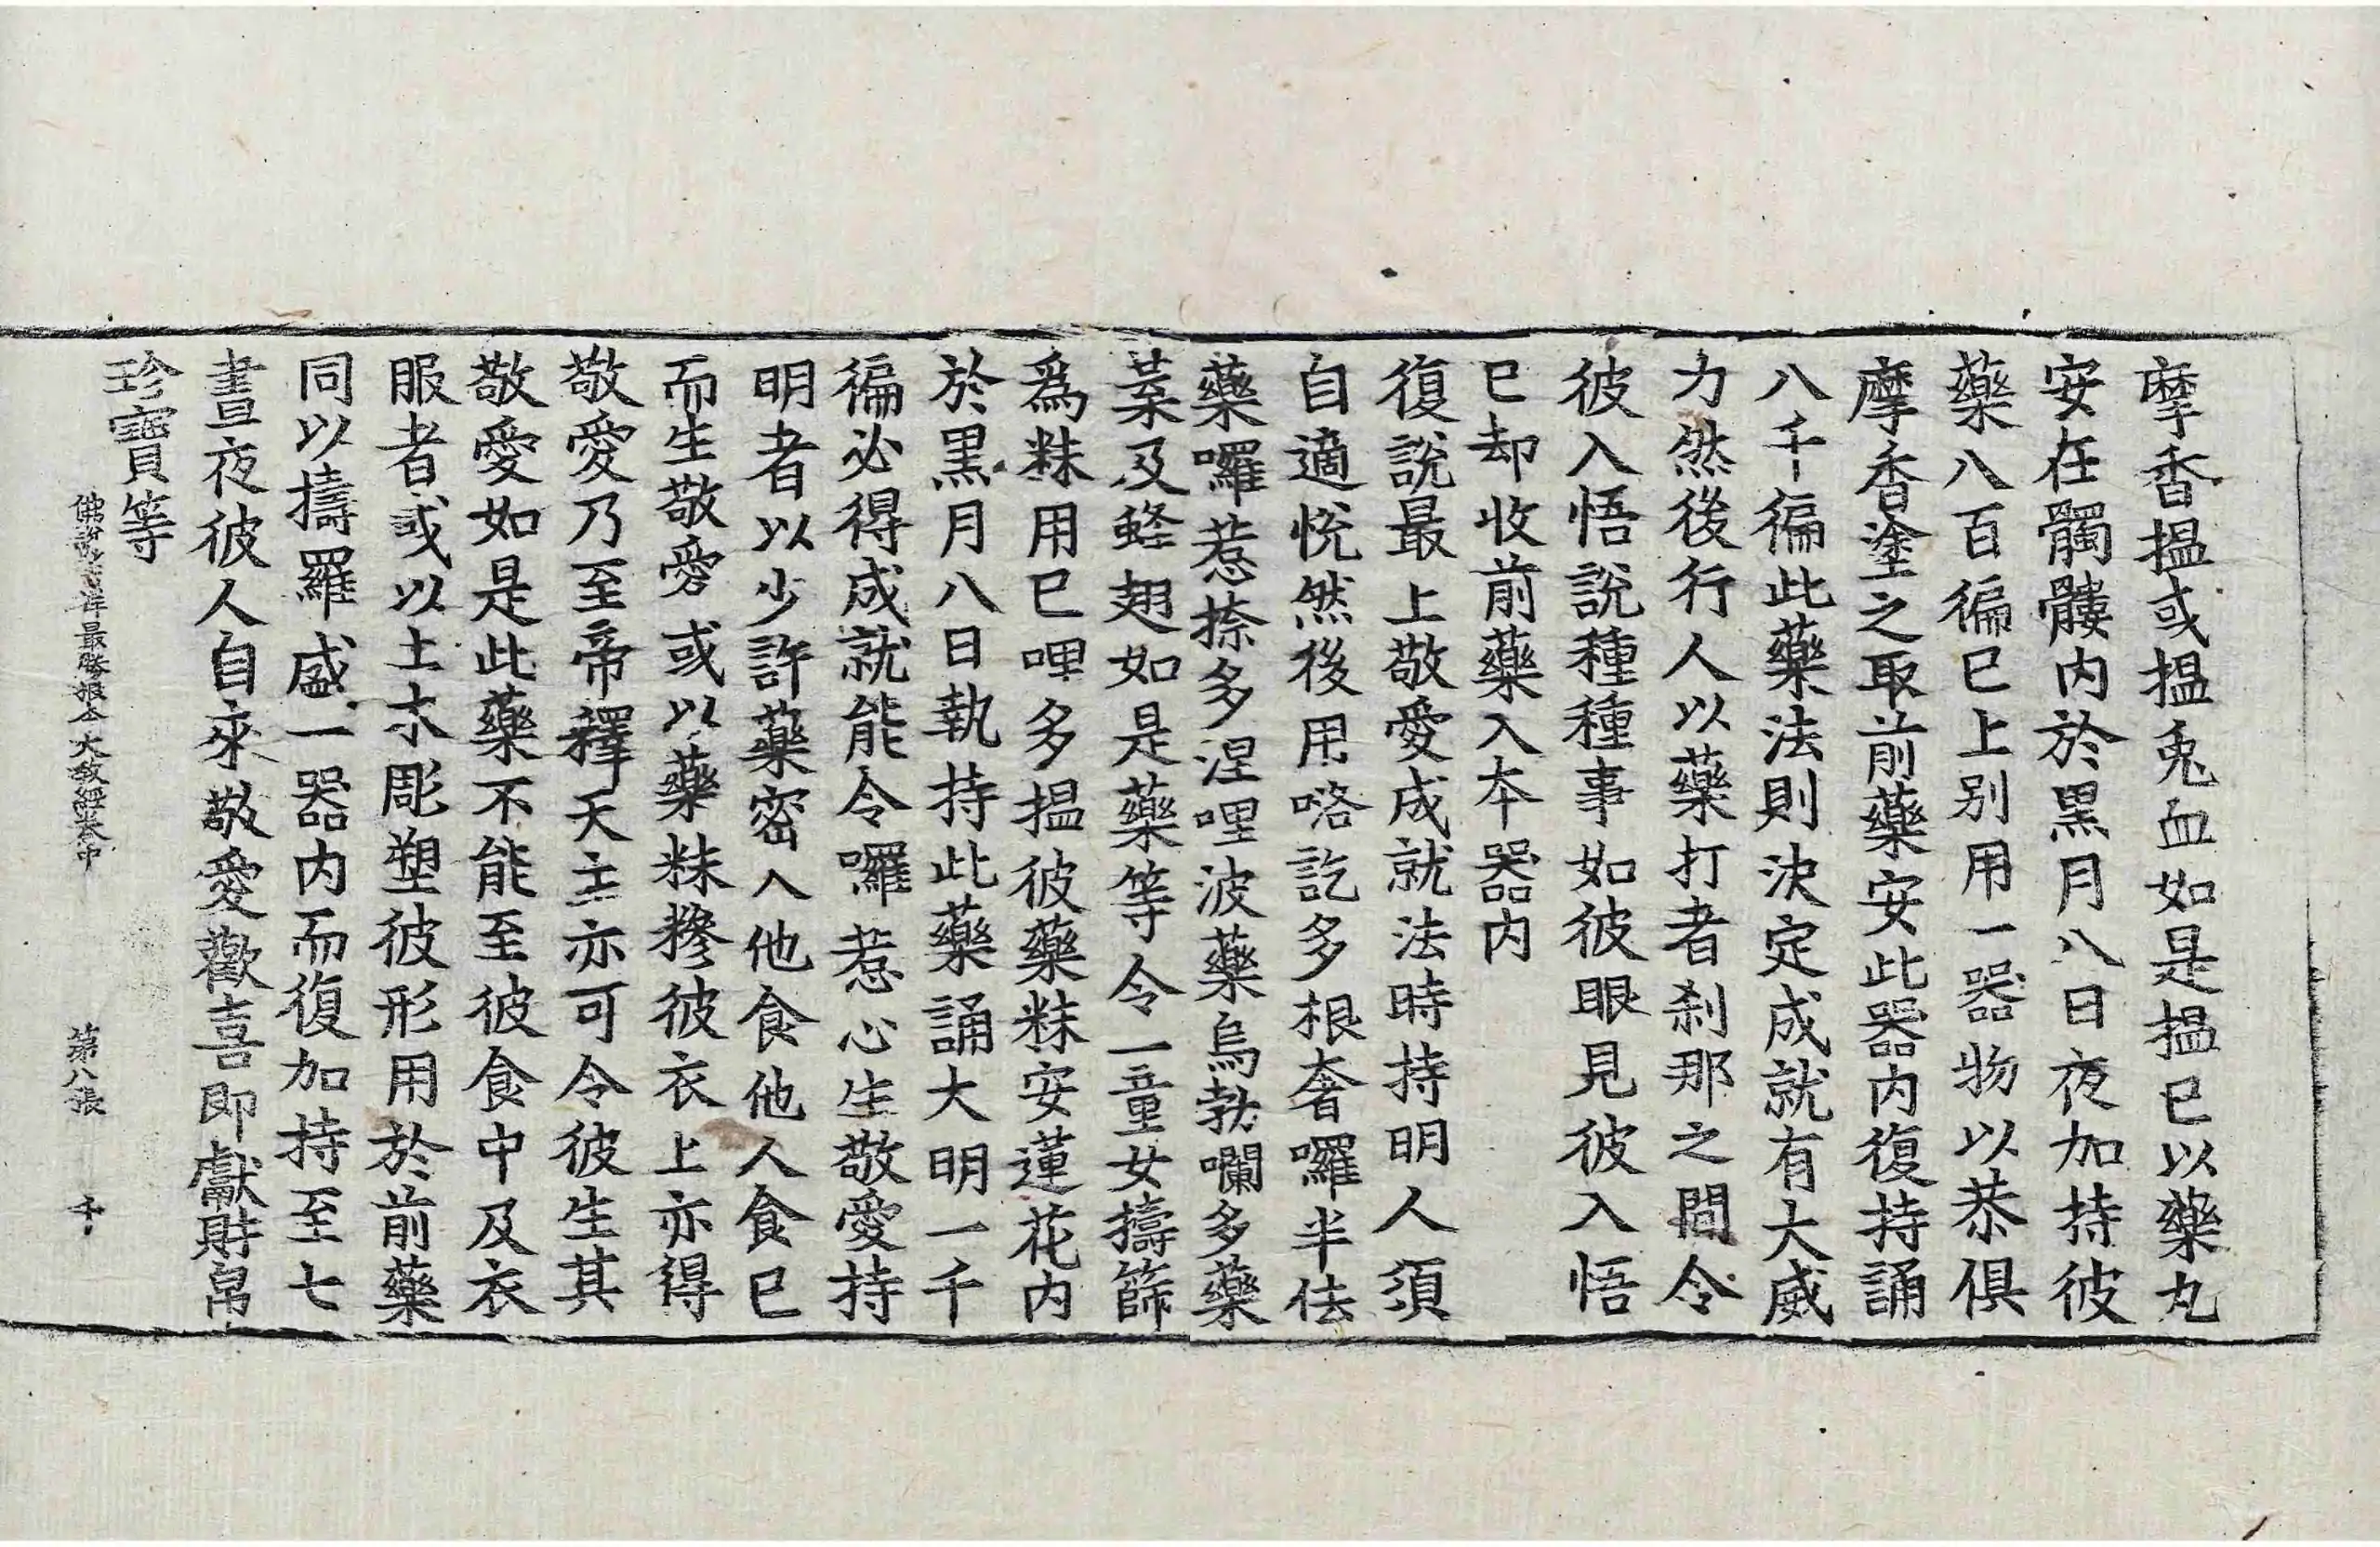 摩香搵或搵兎血如是搵已以藥丸
安在髑髏内於黒月八日夜加持彼
藥八百徧已上別用一器物以恭俱
摩香塗之取前藥安此器内復持誦
八千徧此藥法則決定成就有大威
力然後行人以藥打者刹那之間令
彼入悟説種種事如彼眼見彼入悟
已却收前藥入本器内
復説最上敬愛成就法時持明人須
自適悦然後用咯訖多根奢囉半佉
藥囉惹捺多涅哩波藥烏勃囒多藥
葉及蛏翅如是藥等令一童女擣篩
爲粖用巳哩多搵彼藥粖安蓮花内
於黒月八日執持此藥誦大明一千
徧必得成就能令囉惹心生敬愛持
明者以少許藥密入他食他人食已
而生敬愛或以藥粖摻彼衣上亦得
敬愛乃至帝釋天主亦可令彼生其
敬愛如是此藥不能至彼食中及衣
服者或以土木彫塑彼形用於前藥
同以擣羅盛一器内而復加持至七
晝夜彼人自來敬愛歡喜即獻財帛
珍寶等
佛説最勝根本大教經卷中 第八張 千